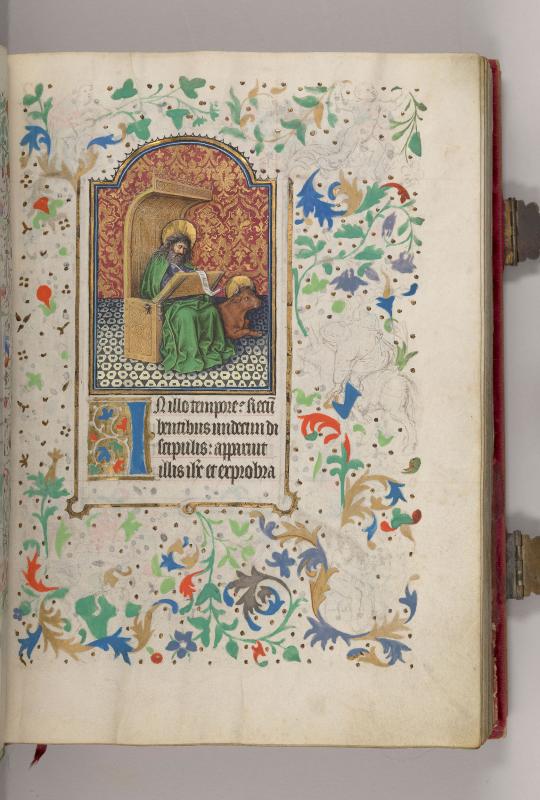 IN illo tempore: Recū
bentibus undecim di
scipulis: apparuit
illis ihc et exprobra